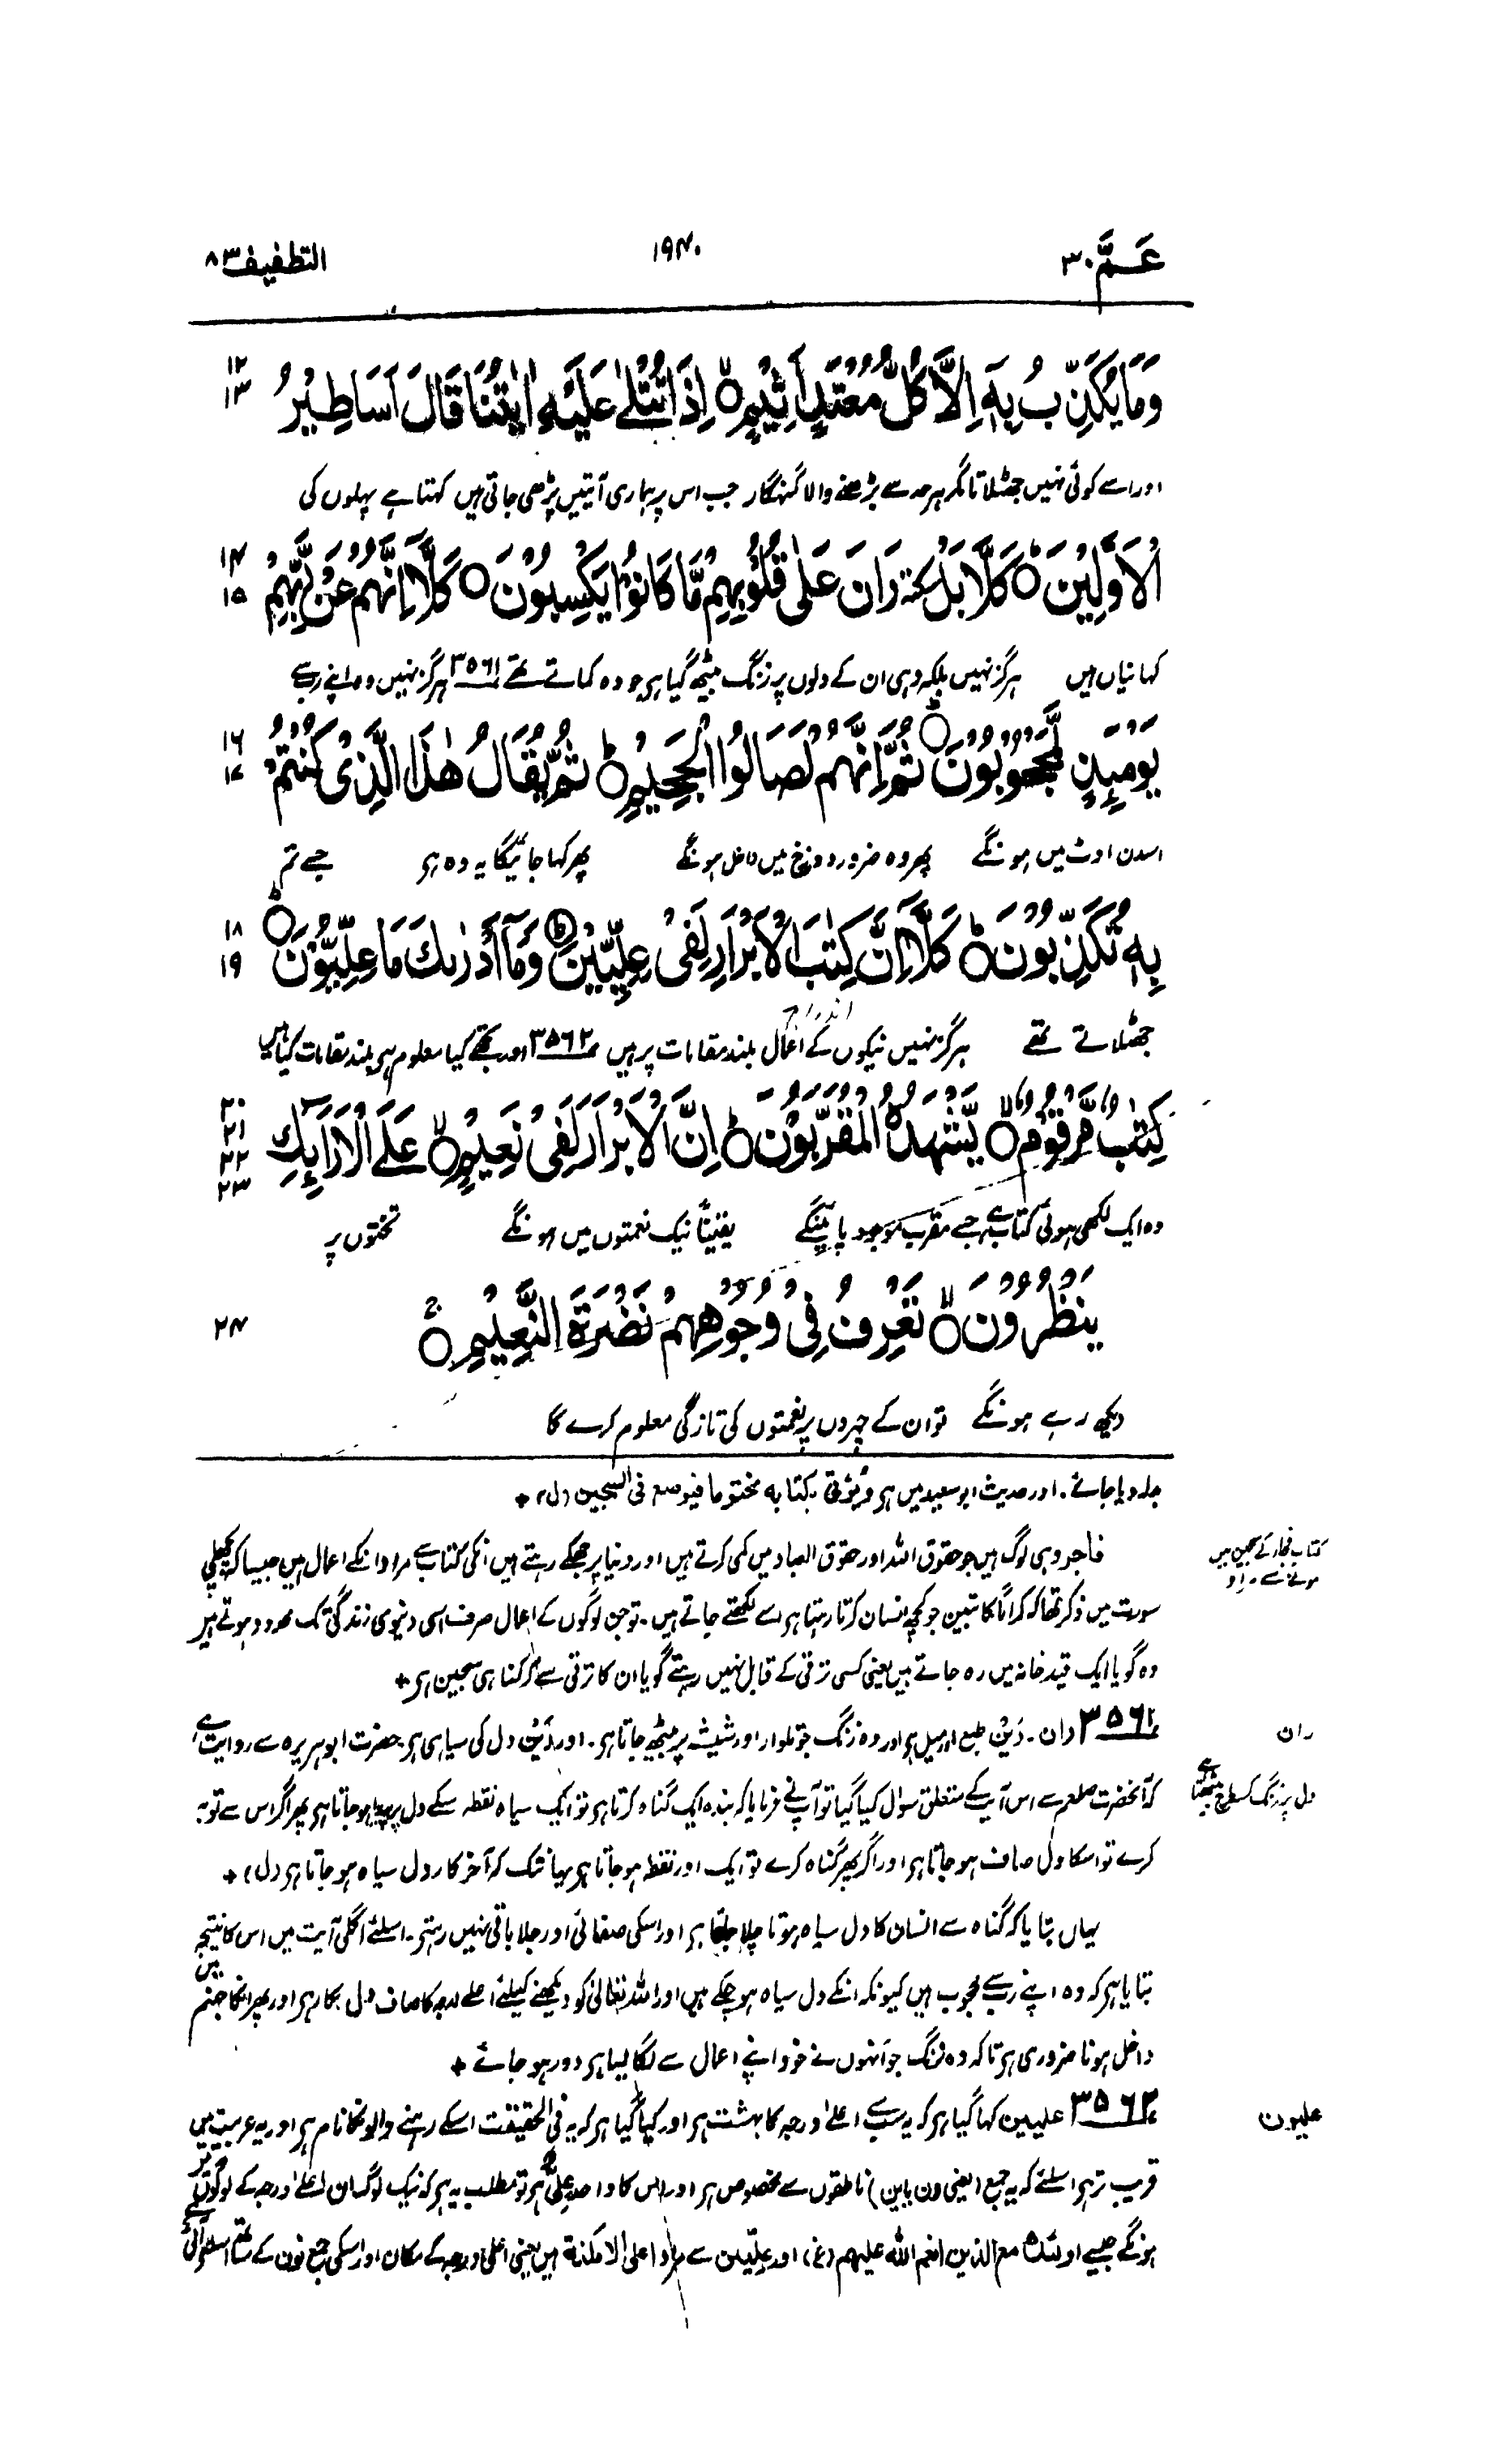 عَمَّ ٣٠
١٩٤٠
التطفیف ٨٣
وَمَا يُكَذِّبُ بِهٖٓ اِلَّا كُلُّ مُعْتَدٍ اَثِيْمٍ ۙ اِذَا تُتْلٰى عَلَيْهِ اٰيٰتُنَا قَالَ اَسَاطِيْرُ
١٢
١٣
اور اسے کوئی نہیں جھٹلاتا مگر ہر حد سے بڑھنے والا گنہگار جب اس پر ہماری آیتیں پڑھی جاتی ہیں کہتا ہے پہلوں کی
الْاَوَّلِيْنَ ؕ كَلَّا بَلْ ٚ رَانَ عَلٰى قُلُوْبِهِمْ مَّا كَانُوْا يَكْسِبُوْنَ ۝ كَلَّآ اِنَّهُمْ عَنْ رَّبِّهِمْ
١٤
١٥
کہانیاں ہیں ہرگز نہیں بلکہ وہی ان کے دلوں پر زنگ بیٹھ گیا ہی جو وہ کماتے تھے ٣٥٦١ ہرگز نہیں وہ اپنے رب سے
يَوْمَئِذٍ لَّمَحْجُوْبُوْنَ ؕ ثُمَّ اِنَّهُمْ لَصَالُوا الْجَحِيْمِ ؕ ثُمَّ يُقَالُ هٰذَا الَّذِيْ كُنْتُمْ
١٦
١٧
اسدن اوٹ میں ہونگے پھر وہ ضرور دوزخ میں داخل ہونگے پھر کہا جائیگا یہ وہ ہی جسے تم
بِهٖ تُكَذِّبُوْنَ ؕ كَلَّآ اِنَّ كِتٰبَ الْاَبْرَارِ لَفِيْ عِلِّيِّيْنَ ؕ وَمَآ اَدْرٰىكَ مَا عِلِّيُّوْنَ ؕ
١٨
١٩
جھٹلاتے تھے ہرگز نہیں نیکوں کے اعمال بلند مقامات پر ہیں ٣٥٦٢ اور تجھے کیا معلوم ہی بلند مقامات کیا ہیں
كِتٰبٌ مَّرْقُوْمٌ ۙ يَّشْهَدُهُ الْمُقَرَّبُوْنَ ؕ اِنَّ الْاَبْرَارَ لَفِيْ نَعِيْمٍ ۙ عَلَى الْاَرَآئِكِ
٢٠
٢١
٢٢
٢٣
وہ ایک لکھی ہوئی کتاب ہے جسے مقرب موجود پائینگے یقیناً نیک نعمتوں میں ہونگے تختوں پر
يَنْظُرُوْنَ ۙ تَعْرِفُ فِيْ وُجُوْهِهِمْ نَضْرَةَ النَّعِيْمِ ۚ
٢٤
دیکھ رہے ہونگے تو ان کے چہروں پر نعمتوں کی تازگی معلوم کرے گا
جلد دیا جائے۔ اور حدیث ابوسعید میں ہی ویؤتی بکتابہ مختوما فیوضع فی السجین (ل) +
فاجر وہی لوگ ہیں جو حقوق اللہ اور حقوق العباد میں کمی کرتے ہیں اور دنیا پر جھکے رہتے ہیں انکی کتاب سے مراد انکے اعمال ہیں جیسا کہ پچھلی
کتاب فجار کے سجین میں
ہونے سے مراد
سورت میں ذکر تھا کہ کراماً کاتبین جو کچھ انسان کرتا رہتا ہی اسے لکھتے جاتے ہیں۔ تو جن لوگوں کے اعمال صرف اسی دنیوی زندگی تک محدود ہوتے ہیں
وہ گویا ایک قید خانہ میں رہ جاتے ہیں یعنی کسی ترقی کے قابل نہیں رہتے گویا ان کا ترقی سے رکنا ہی سجین ہی +
٣٥٦١ ران۔ رَیْن طبع اور میل ہی اور وہ زنگ جو تلوار اور شیشہ پر بیٹھ جاتا ہی۔ اور رَیْن دل کی سیاہی ہی حضرت ابوہریرہ سے روایت ہے
ران
کہ آنحضرت صلعم سے اس آیت کے متعلق سوال کیا گیا تو آپ نے فرمایا کہ بندہ ایک گناہ کرتا ہی تو ایک سیاہ نقطہ اسکے دل پر پیدا ہو جاتا ہی پھر اگر اس سے توبہ
دل پر زنگ کسطرح بیٹھتا ہے
کرے تو اسکا دل صاف ہو جاتا ہی اور اگر پھر گناہ کرے تو ایک اور نقطہ ہو جاتا ہی یہانتک کہ آخر کار دل سیاہ ہو جاتا ہی (ل) +
یہاں بتایا کہ گناہ سے انسان کا دل سیاہ ہوتا چلا جاتا ہی اور اسکی صفائی اور جلا باقی نہیں رہتی۔ اسلئے اگلی آیت میں اس کا نتیجہ
بتایا ہی کہ وہ اپنے رب سے محجوب ہیں کیونکہ انکے دل سیاہ ہو چکے ہیں اور اللہ تعالیٰ کو دیکھنے کیلئے اعلے درجہ کا صاف دل بکار ہی اور پھر انکا جہنم میں
داخل ہونا ضروری ہی تاکہ وہ زنگ جو انہوں نے خود اپنے اعمال سے لگا لیا ہی دور ہو جائے +
٣٥٦٢ علیین کہا گیا ہی کہ یہ سب سے اعلیٰ درجہ کا بہشت ہی اور کہا گیا ہی کہ یہ فی الحقیقت اسکے رہنے والونکا نام ہی اور یہ عربیت میں
علیون
قریب تر ہی اسلئے کہ یہ جمع (یعنی ون یا ین) ناطقوں سے مخصوص ہی اور اس کا واحد عِلِّیٌّ ہی تو مطلب یہ ہی کہ نیک لوگ ان اعلیٰ درجہ کے لوگوں میں سے
ہونگے جیسے اولئک مع الذین انعم اللہ علیہم (غ) اور علّیین سے مراد اعلی الامکنة ہیں یعنی اعلیٰ درجہ کے مکان اور اسکی جمع نون کے ساتھ اسلئے آئی